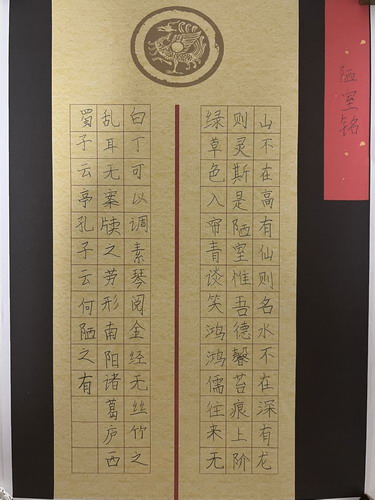 陋室铭
山不在高有仙则名水不在深有龙
则灵斯是陋室惟吾德馨苔痕上阶
绿草色入帘青谈笑鸿鸿儒往来无
白丁可以调素琴阅金经无丝竹之
乱耳无案牍之劳形南阳诸葛庐西
蜀子云亭孔子云何陋之有